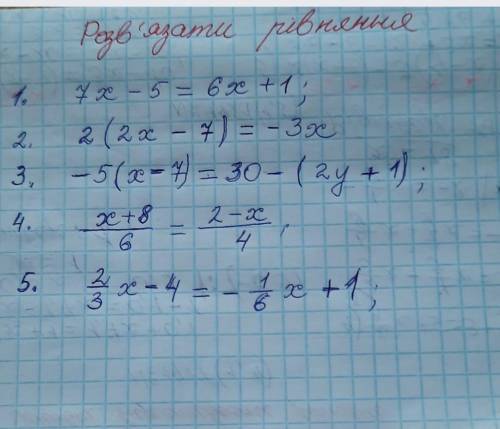 Розв'язати рівняння
1. 7x - 5 = 6x + 1;
2. 2(2x - 7) = -3x
3. -5(x - 7) = 30 - (2y + 1);
4. (x+8)/6 = (2-x)/4,
5. 2/3 x - 4 = - 1/6 x + 1;